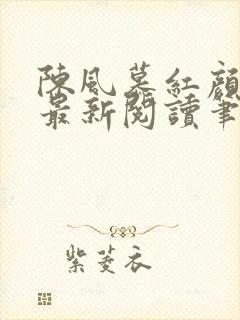 陳風慕紅顏
最新閱讀筆
紫菱衣